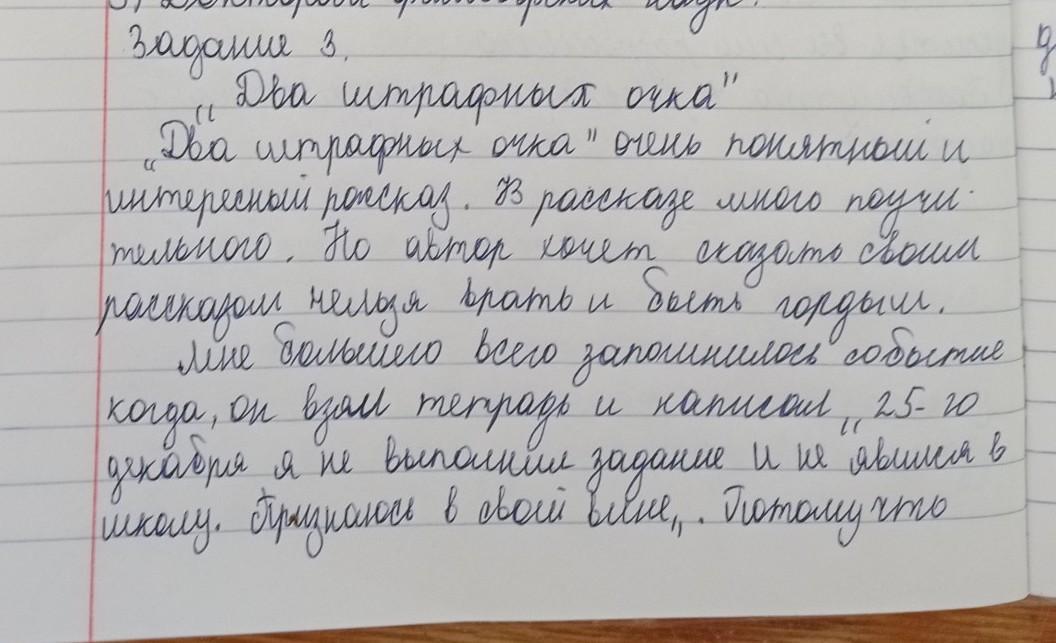 Задание 3.
„Два штрафных очка"
„Два штрафных очка" очень понятный и
интересный рассказ. В рассказе много поучи-
тельного. Но автор хочет сказать своим
рассказом нельзя врать и быть гордым.
Мне большего всего запомнилось событие
когда, он взял тетрадь и написал „25-го
декабря я не выполнил задание и не явился в
школу. Признаюсь в своей вине„. Потому что